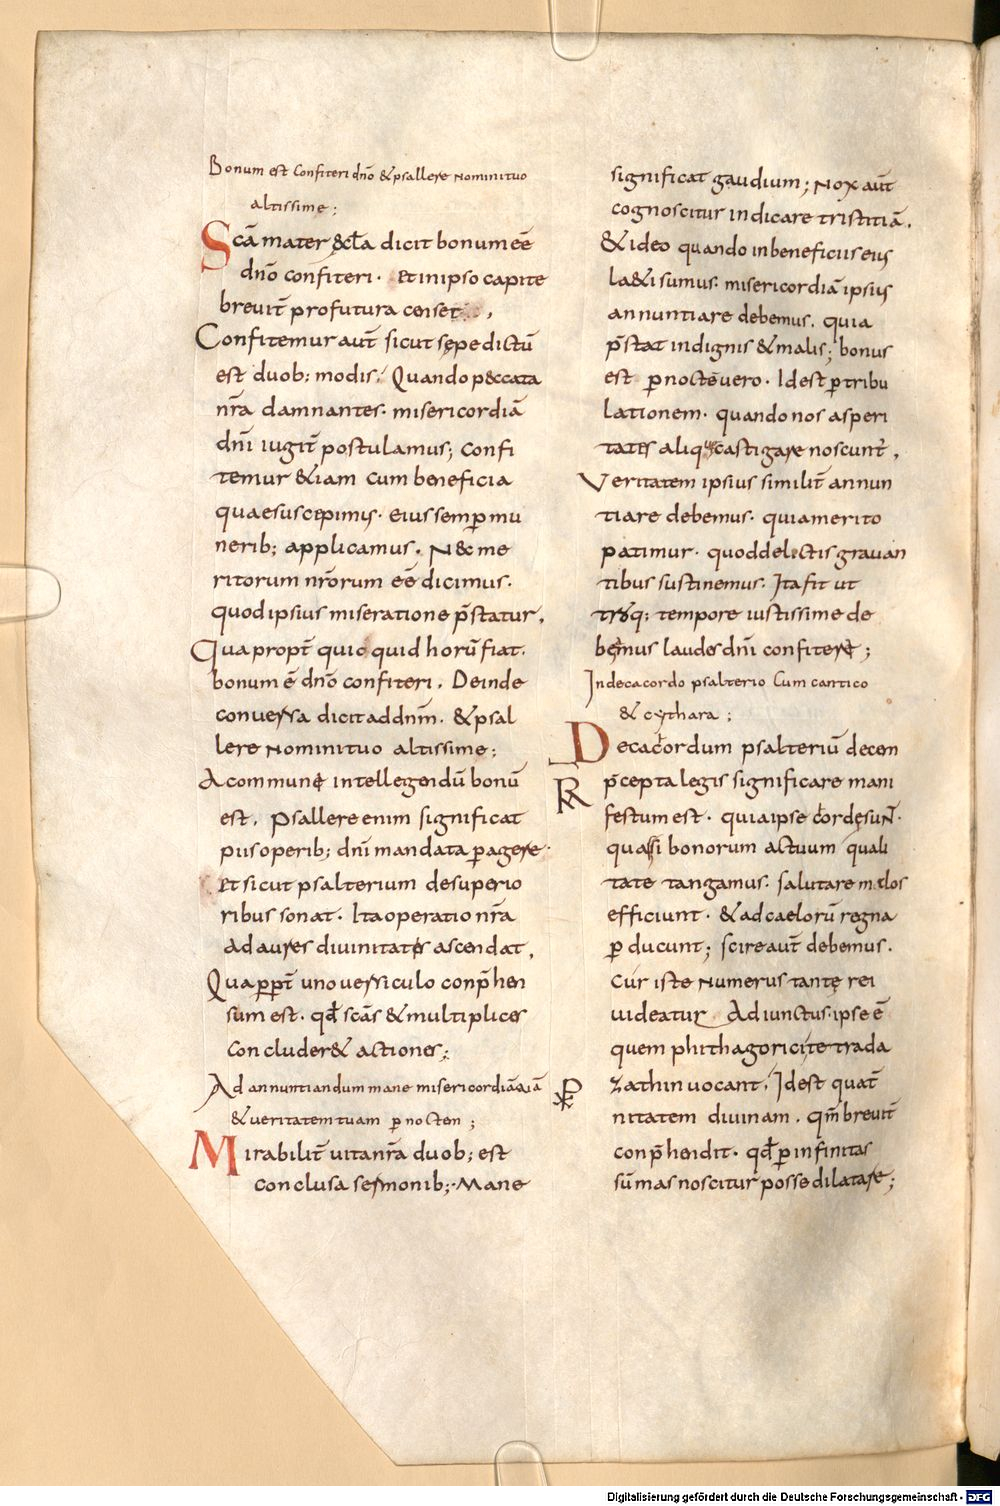 Bonum est confiteri dño & psallere nomini tuo
altissime;
Scā mater &cła dicit bonum eē
dño confiteri. et in ipso capite
breuit̄ profutura censet.,
Confitemur aut̄ sicut sępe dictū
est duob; modis; Quando peccata
nr̄a damnantes. misericordiā
dn̄i iugit̄ postulamus; confi
temur &iam cum beneficia
quae suscepimus. eius semp̄ mu
nerib; applicamus. Nec me
ritorum nr̄orum eē dicimus.
quod ipsius miseratione p̄statur.
Qua propt̄ quic quid horū fiat.
bonum ē dño confiteri. Deinde
conuersa dicit ad dnm̄. & psal
lere nomini tuo altissime;
A commune intellegendū bonū
est. psallere enim significat
piis operib; dn̄i mandata p̄agere.
Et sicut psalterium de superio
ribus sonat. Ita operatio nr̄a
ad aures diuinitatis ascendat.
Qua p̄pt̄ uno uersiculo conp̄hen
sum est. qđ scās & multiplices
concluder& actiones;
Ad annuntiandum mane misericordiā tuā
& ueritatem tuam p̄ noctem;
Mirabilit̄ uita nr̄a duob; est
conclusa sermonib;. Mane
significat gaudium; Nox aut̄
cognoscitur indicare tristitiā.
& ideo quando in beneficiis eius
la&i sumus. misericordiā ipsius
annuntiare debemus. quia
p̄stat indignis & malis; bonus
est p̄ noctē uero. Id est p̄ tribu
lationem. quando nos asperi
tates aliquę castigare noscunt̄.
Veritatem ipsius similit̄ annun
tiare debemus. quia merito
patimur. quod delictis grauan
tibus sustinemus. Ita fit ut
utroq; tempore iustissime de
bemus laudes dn̄i confitere;
In decacordo psalterio cum cantico
& cythara;
Decachordum psalteriū decem
p̄cepta legis significare mani
festum est. quia ipse chordę sunt.
quasi bonorum actuum quali
tate tangamus. salutare melos
efficiunt. & ad caelorū regna
p̄ ducunt; scire aut̄ debemus.
cur iste numerus tantę rei
uideatur Adiunctus. ipse ē
quem phithagorici te trada
zathin uocant. Id est quat̄
nitatem diuinam. qm̄ breuit̄
conp̄hendit. qđ p̄ infinitas
sūmas noscitur posse dilatare;
Digitalisierung gefördert durch die Deutsche Forschungsgemeinschaft - DFG